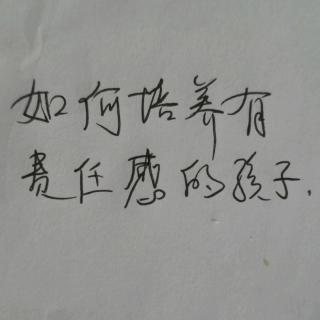 如何培养有
责任感的孩子.